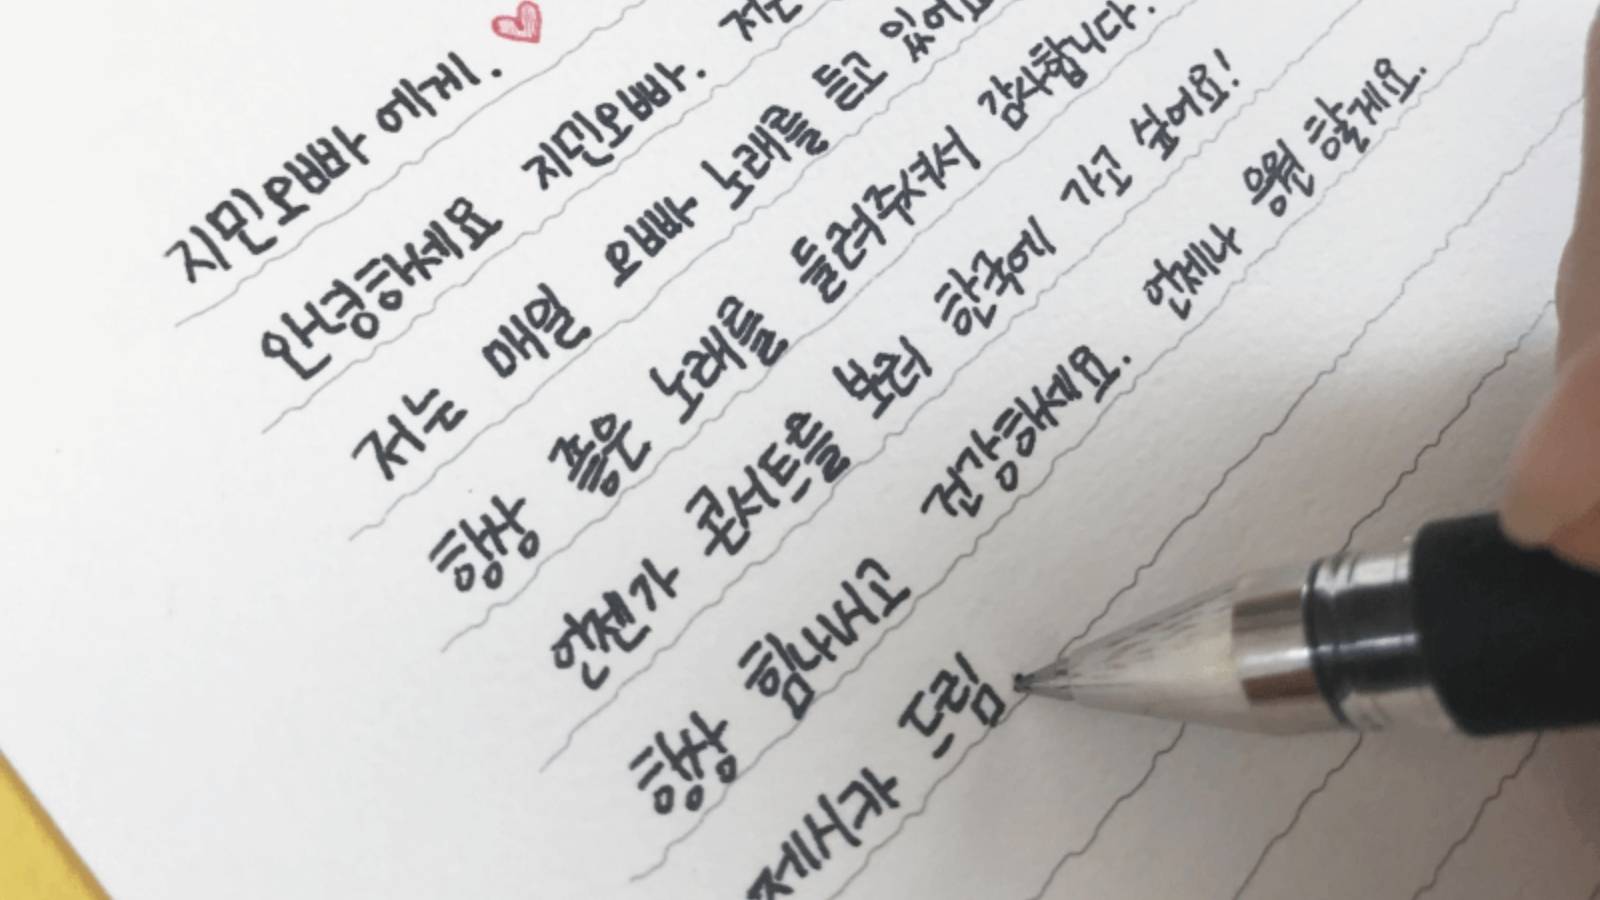 지민오빠에게.
안녕하세요 지민오빠. 저는
저는 매일 오빠 노래를 듣고 있어요
항상 좋은 노래를 들려주셔서 감사합니다.
언젠가 콘서트를 보러 한국에 가고 싶어요!
항상 힘내시고 건강하세요. 언제나 응원 할게요.
제시카 드림